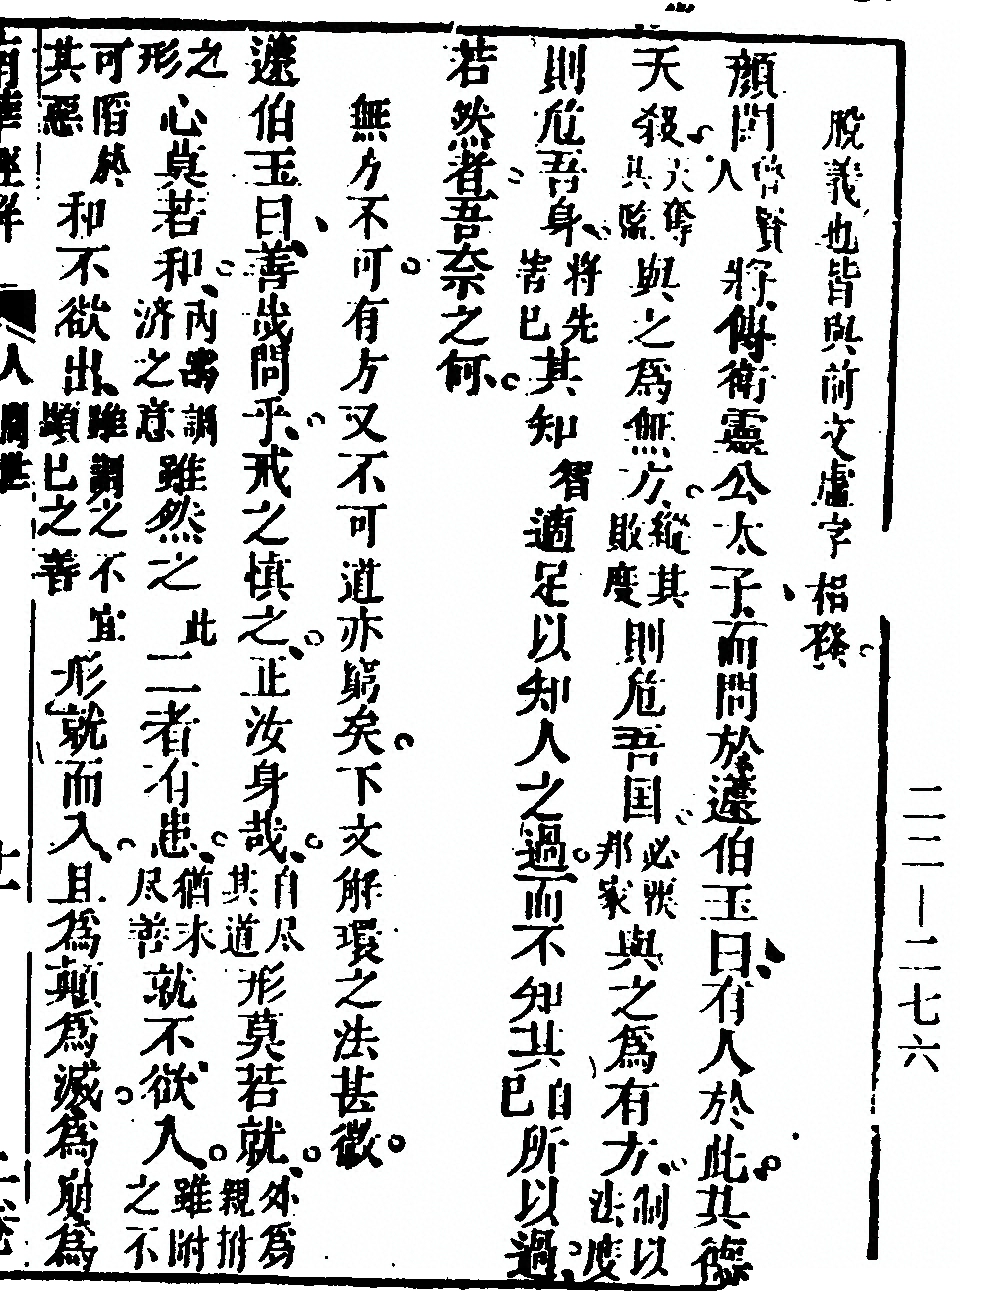 二二—二七六
脫義也皆與前文虛字相發
顏闔魯賢人將傅衛靈公太子而問於蘧伯玉曰有人於此其德
天殺天奪其鑑與之爲無方縱其敗度則危吾国必喪邦家與之爲有方制以法度
則危吾身將先害已其知智適足以知人之過而不知其自已所以過
若然者吾奈之何
無方不可有方又不可道亦窮矣下文解環之法甚微
蘧伯玉曰善哉問乎戒之慎之正汝身哉自尽其道形莫若就外爲親拊
之形心莫若和內寓調济之意雖然之此二者有患猶未尽善就不欲入雖附之不
可陷於其惡和不欲出雖調之不宜顯已之善形就而入且爲顛爲滅爲崩爲
南華經解 人間世